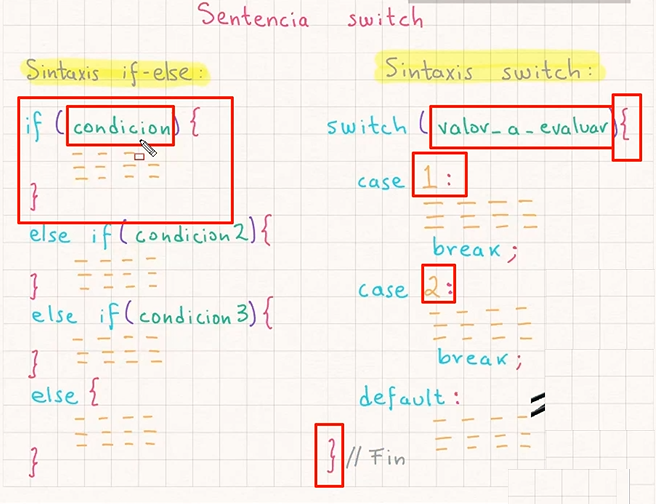 Sentencia switch
Sintaxis if-else:
if (condicion) {
}
else if (condicion2){
}
else if (condicion3){
}
else {
}
Sintaxis switch:
switch (valor_a_evaluar){
case 1:
break;
case 2:
break;
default:
} // Fin